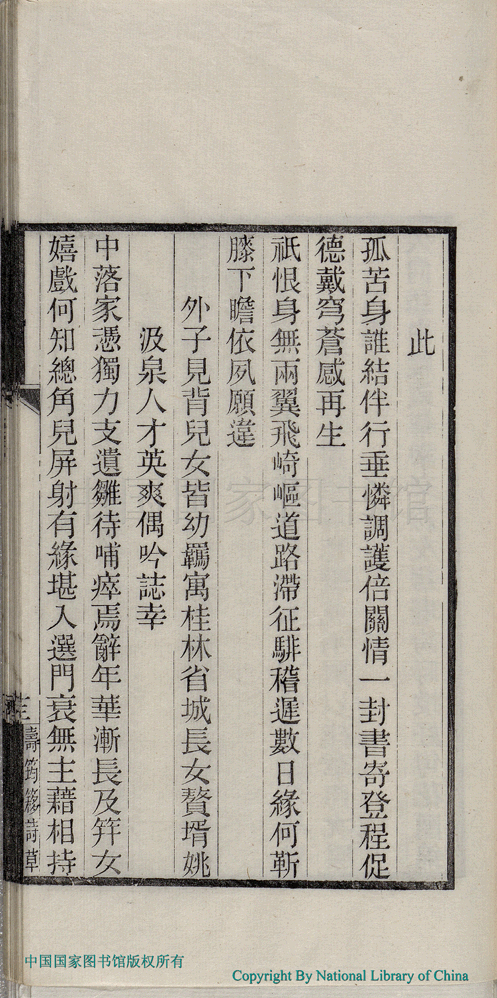 此
孤苦身誰結伴行垂憐調護倍關情一封書寄登程促
德戴穹蒼感再生
祇恨身無兩翼飛崎嶇道路滯征騑稽遲數日緣何靳
膝下瞻依夙願違
外子見背兒女皆幼羈寓桂林省城長女贅壻姚
汲泉人才英爽偶吟誌幸
中落家憑獨力支遺雛待哺瘁焉辭年華漸長及笄女
嬉戲何知總角兒屏射有緣堪入選門衰無主藉相持
詩草
中国国家图书馆版权所有
Copyright By National Library of China